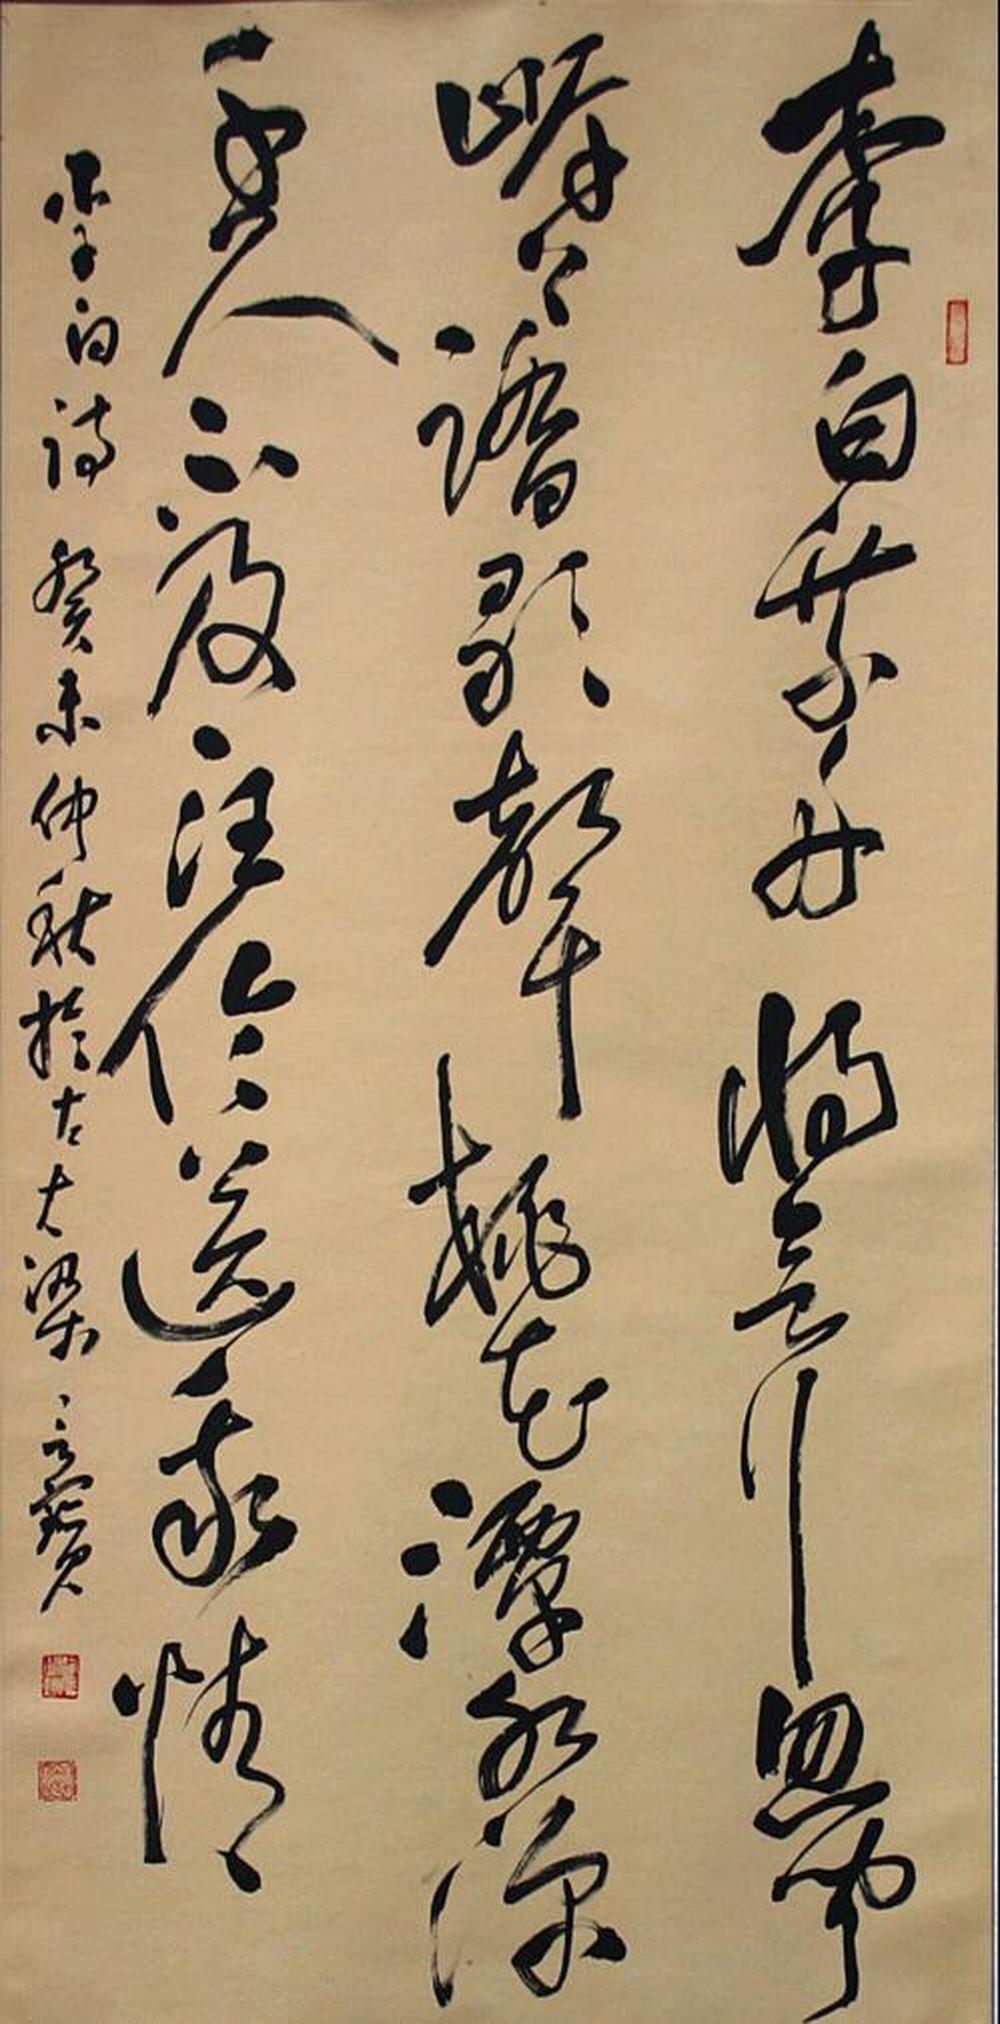 李白乘舟將欲行忽聞
岸上踏歌聲桃花潭水深
千尺不及汪倫送我情
李白詩 癸未仲秋於古大梁 言寶